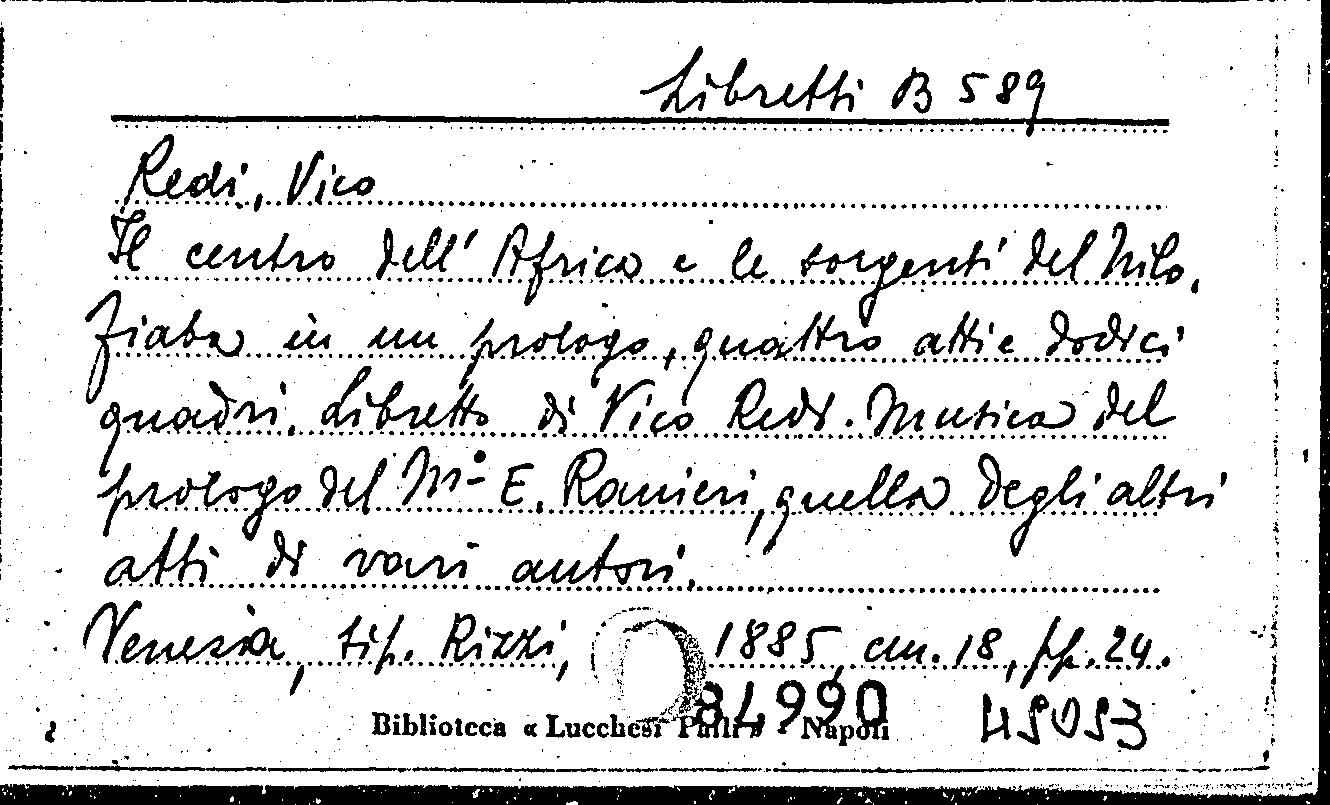 Libretti B 589
Redi, Vico
Il centro dell'Africa e le sorgenti del Nilo.
Fiaba in un prologo, quattro atti e dodici
quadri. Libretto di Vico Redi. Musica del
prologo del M.° E. Ranieri, quella degli altri
atti di vari autori.
Venezia, tip. Rizzi, 1885, cm. 18, pp. 24.
84990 45053
Biblioteca « Lucchesi Palli » Napoli